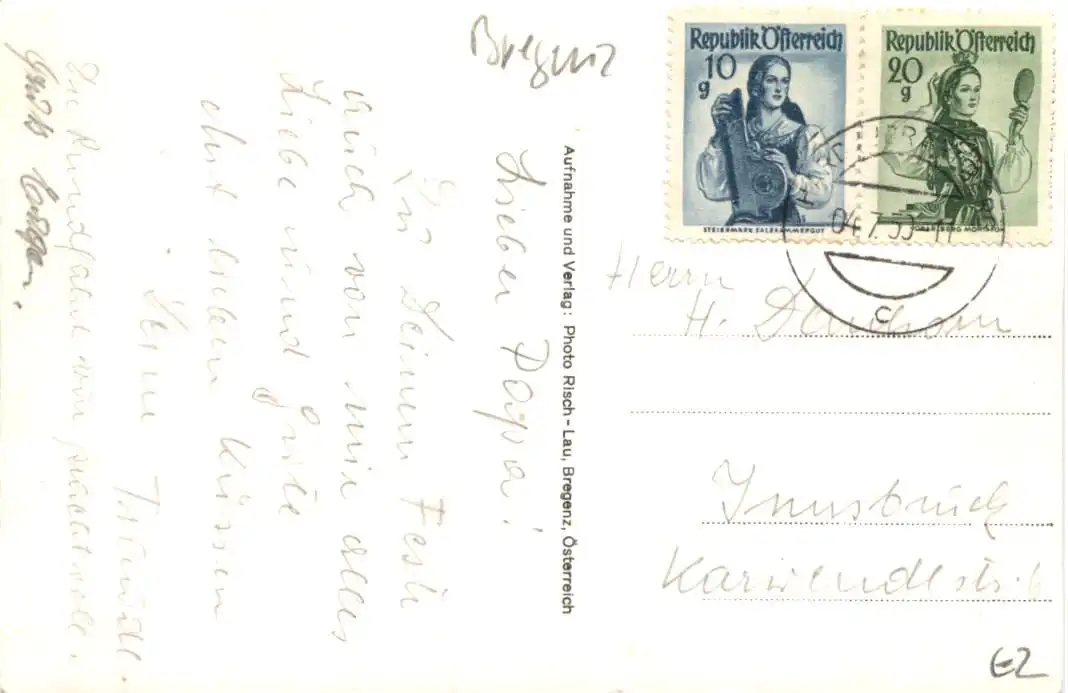 Bregenz
Republik Österreich
10
g
STEIERMARK SALZKAMMERGUT
Republik Österreich
20
g
VORARLBERG MONTAFON
04.7.53-11
c
Lieber Papa!
Zu Deinem Feste
auch von mir alles
Liebe und Gute
mit lieben Küssen
Deine Traudl.
Die Rundfahrt war prachtvoll.
Aufnahme und Verlag: Photo Risch-Lau, Bregenz, Österreich
Herrn
H.
Innsbruck
Karwendelstr. 6
€2